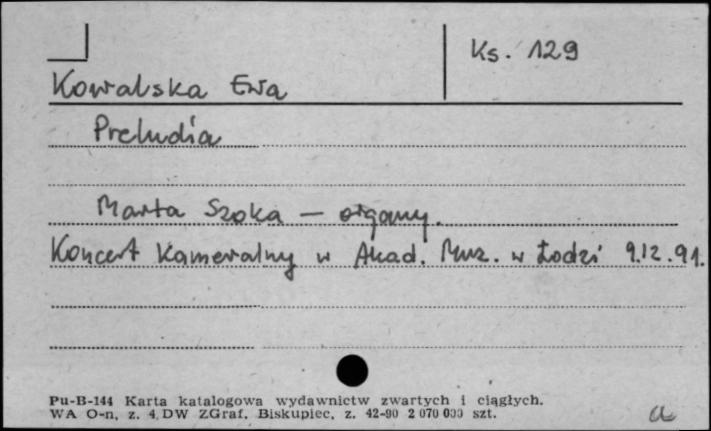 Ks. 129
Kowalska Ewa
Preludia
Marta Szoka — organy.
Koncert Kameralny w Akad. Muz. w Łodzi 9.12.91.
Pu-B-144 Karta katalogowa wydawnictw zwartych i ciągłych.
WA O-n, z. 4, DW ZGraf. Biskupiec, z. 42-90 2 070 000 szt.
a